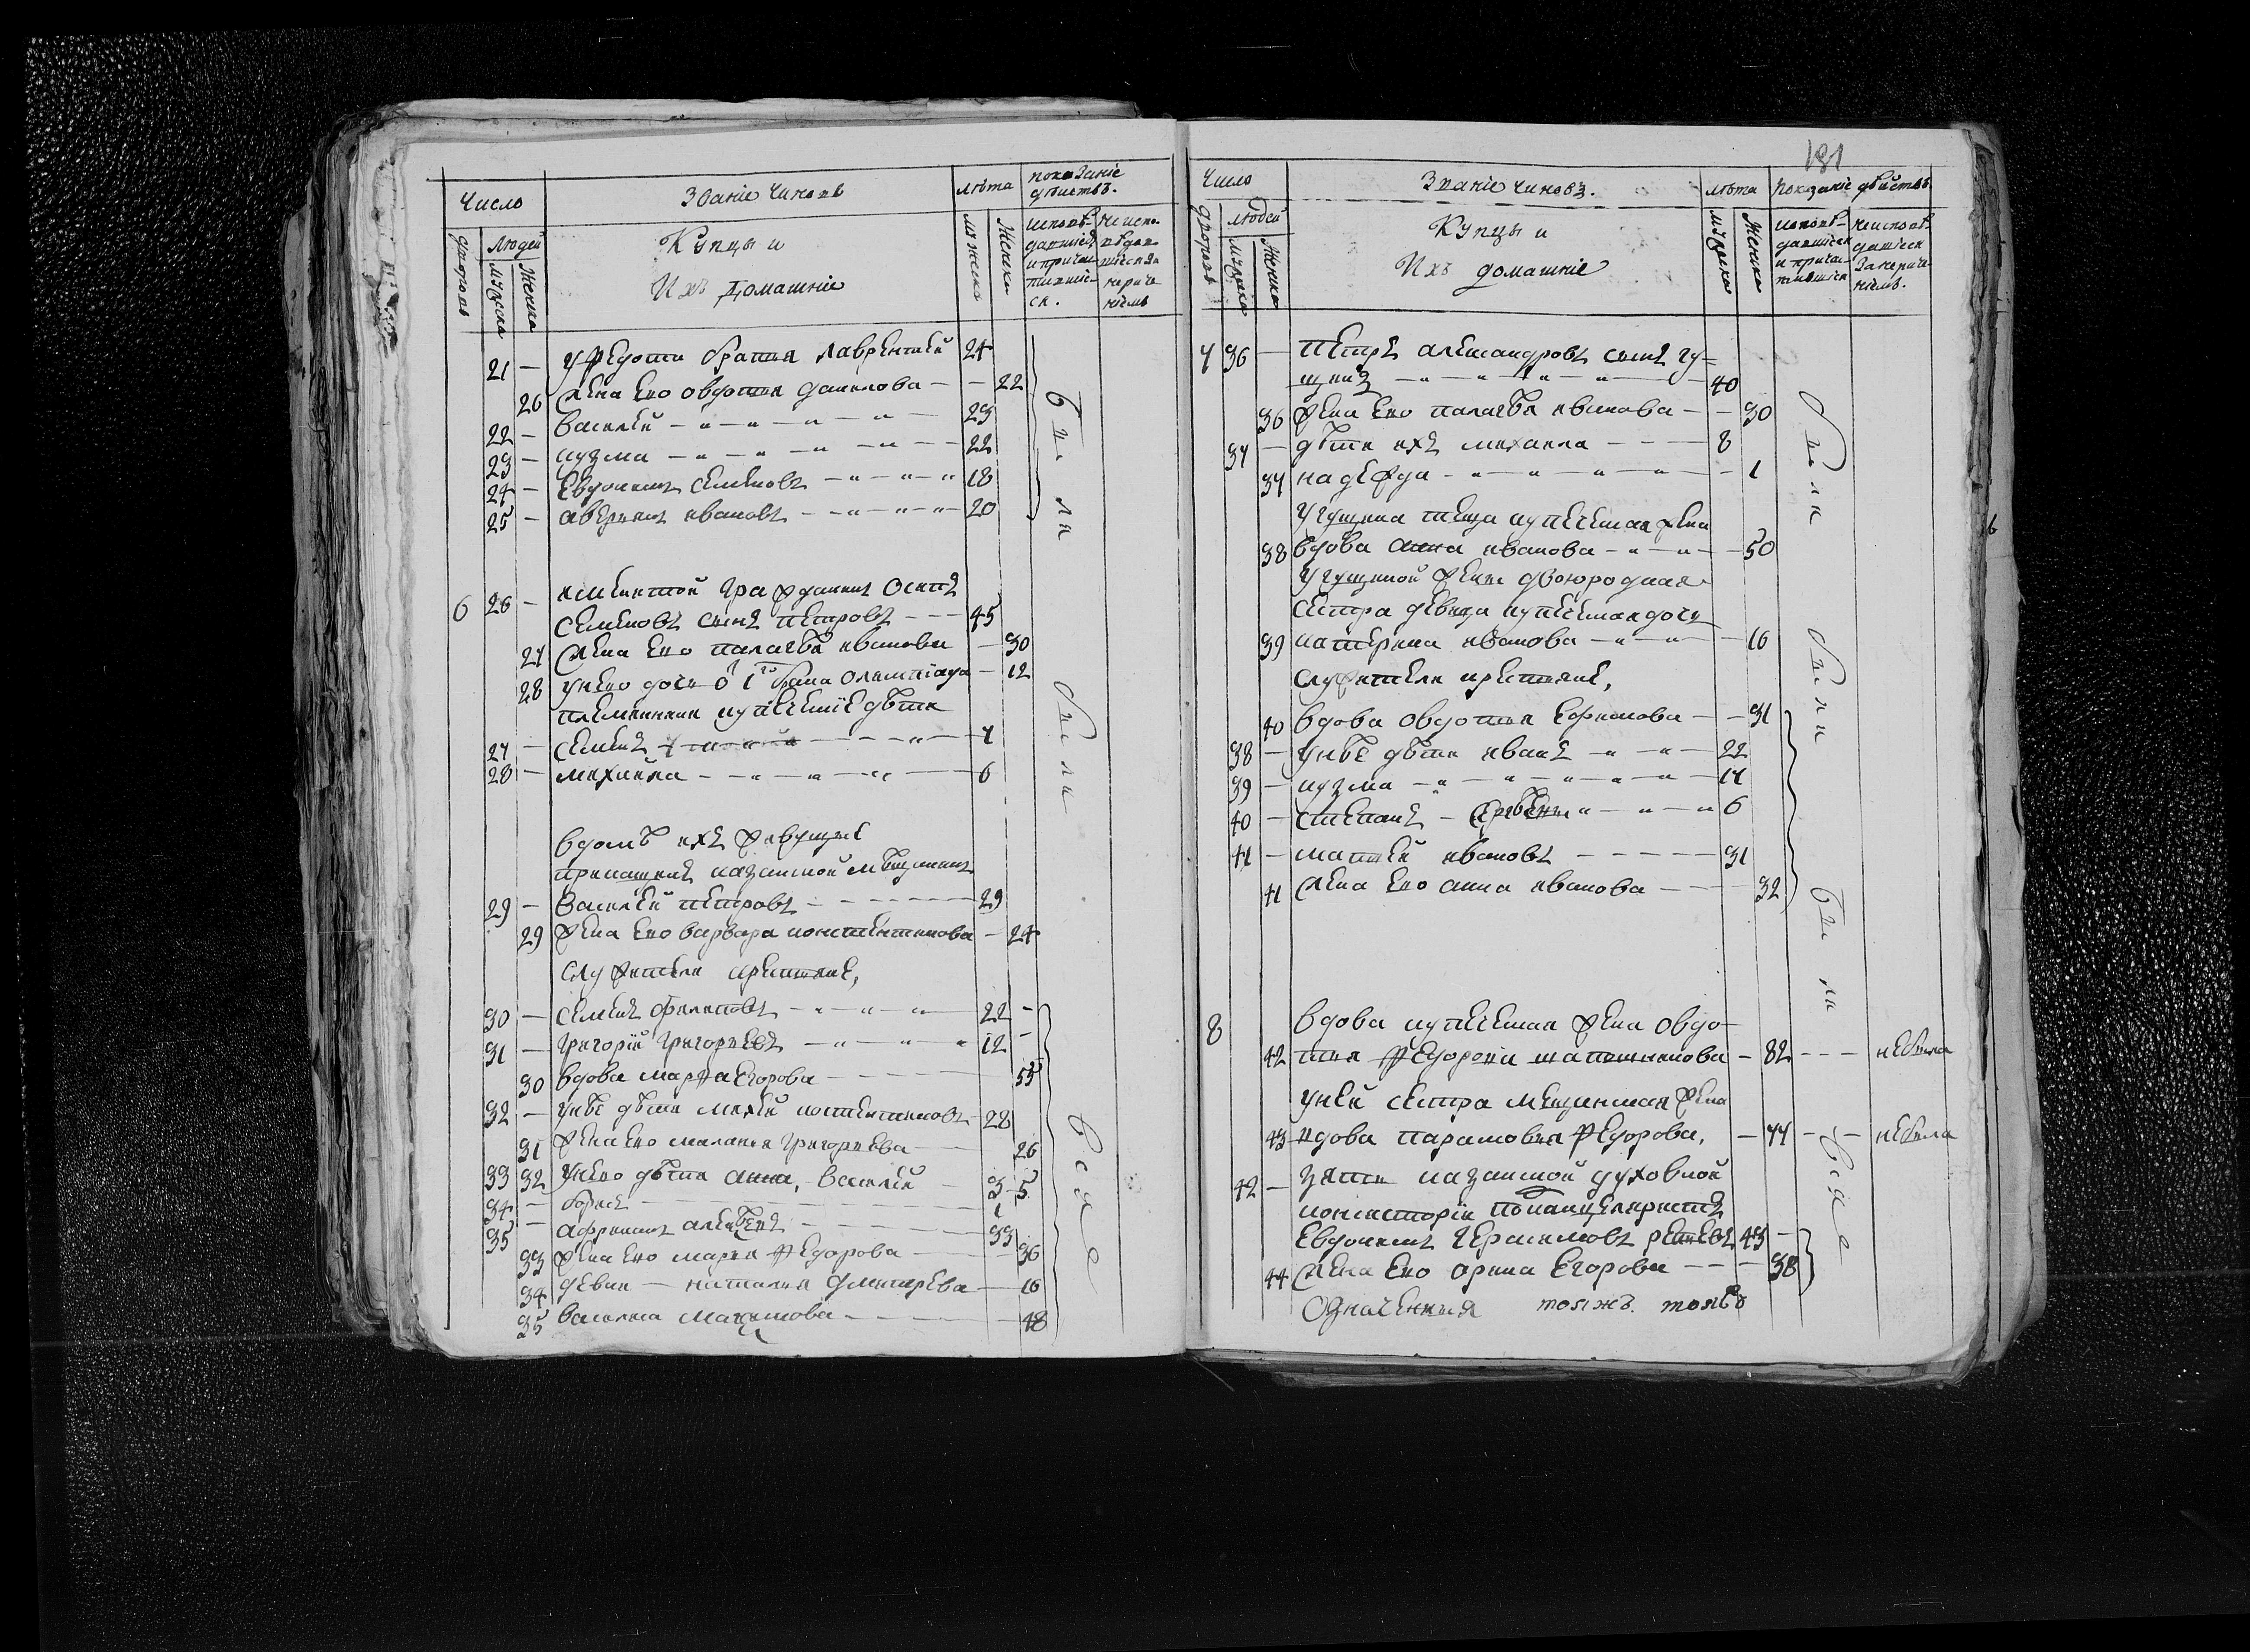 Число
Званіе Чиновъ
лѣта
показаніе дѣиствъ.
дворовъ
Людей
мужеска
Женска
Купцы и
Ихъ Домашніе
мужеска
Женска
исповѣдавшіеся и причастившіеся.
неисповѣдавшіеся за нерачѣніемъ
21 — у Федота братья лаврентий 24
26 жена ево овдотья данилова — — 22
22 — василей — „ — „ — „ — „ — 23
23 — кузма — „ — „ — „ — „ — — 22
24 — Евдокимъ семеновъ — „ — „ — „ 18
25 — аверкиі ивановъ — „ — „ — „ — 20
были
6 26 — имѣнитой гражданинъ Осипъ
семеновъ сынъ петровъ — — 45
27 жена ево палагѣя иванова — 30
28 унево дочь о 1го брака олимпіада — 12
племянники купѣческіе дѣти
27 — семенъ — — — „ — 7
28 — михайла — „ — „ — „ — 6
были
вдомѣ ихъ живущие
прикащикъ казанской мѣщининъ
29 — Василей петровъ — — — — — 29
29 жена ево варвара константинова — 24
служители крестьяне,
30 — семенъ филиповъ — „ — „ — „ — 22 —
31 — григорій григорьевъ — „ — „ — „ 12 —
30 вдова марфа Егорова — — — — 55
32 — унѣе дѣти михей константиновъ — 28
31 жена ево маланья григорьева — — 26
33 32 унево дѣти анна, василей — 3 5
34 — борисъ — — — — — 1
35 — афонасиі алексѣевъ — — — — — 33
33 жена ево марья Федорова — — 36
34 девки — наталия дмитирева — 16
35 василиса максимова — — — — 48
всѣ
181
Число
Званіе чиновъ.
лѣта
показаніе дѣйствъ
дворовъ
людей
мужеска
Женска
Купцы и
Ихъ домашніе
мужеска
Женска
исповѣдавшіеся и причастившіеся
неисповѣдавшіеся за нерачѣніемъ.
7 36 — петръ александровъ сынъ гу=
щинъ — „ — „ — „ — „ — 40
36 жена ево палагѣя иванова — — 30
37 — дѣти ихъ михаила — — — 8
37 надежда — „ — „ — „ — „ — — 1
были
у гущина теща купеческая жена
38 вдова анна иванова — „ — „ — — 50
у гущиной жены двоюродная
сестра девица купеческая дочь
39 катерина иванова — „ — „ — — 16
были
служители крестьяне,
40 вдова овдотья Ефимова — — 31
38 — унѣе дѣти иванъ — „ — „ — 22
39 — кузма — „ — „ — „ — „ — „ — 17
40 — степанъ — „ — „ — „ 6
41 — матвей ивановъ — — — — — 31
41 жена ево анна иванова — — — 32
были
8 вдова купеческая жена овдо-
42 тья Федорова шапошникова — 82 — — — небыла
унеи сестра мещинская жена
43 вдова парасковья Федорова, — 77 — — — небыла
42 — зять казанской духовной
консисторіи подканцеляристъ
Евдокимъ герасимовъ 43 —
44 жена ево орина Егорова — — — 38
всѣ
Означенныя толжъ. толвъ